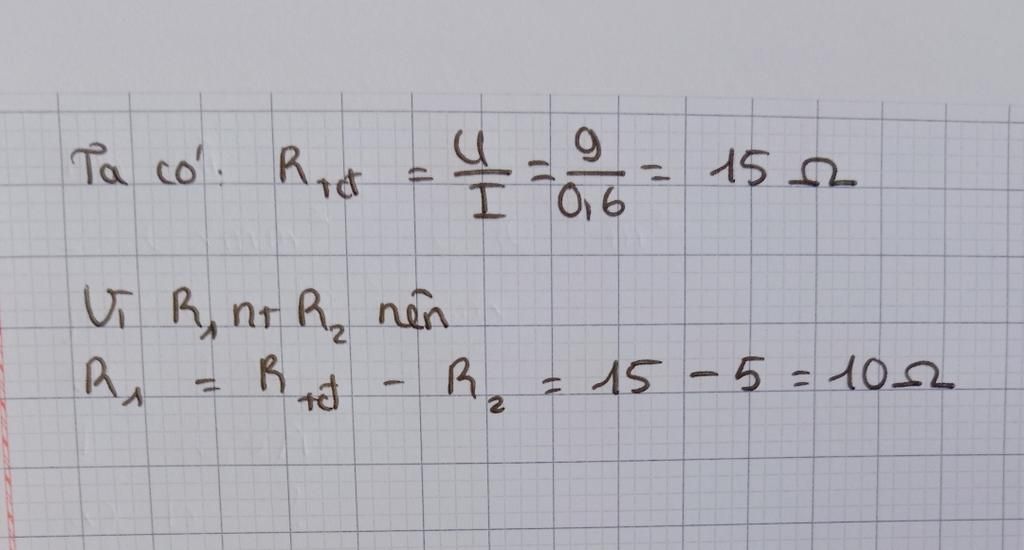 Ta có: R_tđ = U/I = 9/0,6 = 15 Ω
Vì R₁ nt R₂ nên
R₁ = R_tđ - R₂ = 15 - 5 = 10 Ω